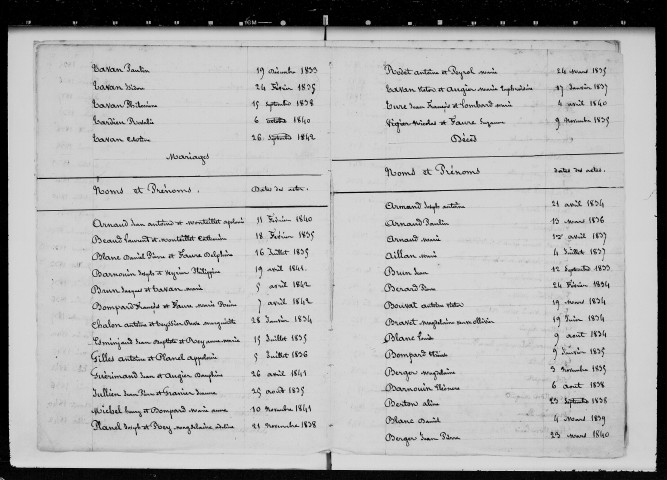 Tavan Paulin 19 décembre 1833
Tavan 24 Février 1835
Tavan Philomène 15 septembre 1838
Tardieu Rosalie 6 octobre 1840
Tavan 26 septembre 1842
Mariages
Noms et Prénoms. Dates des actes.
Arnaud Jean antoine et Monteillet 11 Février 1840
Beaud Laurent et Monteillet Catherine 18 Février 1835
Blanc Daniel Pierre et Faure Delphine 16 Juillet 1835
Barnouin Joseph et Veyrier Philippine 19 avril 1841.
Brun Jacques et Tavan marie 5 avril 1842
Bompard François et Faure Marie 7 avril 1842
Chalon antoine et Marguerite 28 Janvier 1834
Jean Baptiste et Rey anne marie 15 Juillet 1835
Gilles antoine et Planel appolonie 5 Juillet 1836
Guérimand Jean et Augier Dauphine 26 avril 1841
Jullien Jean Pierre et Granier Jeanne 25 août 1835
Michel et Bompard Marie anne 10 Novembre 1841
Planel Joseph et Rey magdelaine 21 Novembre 1838
Rodet antoine et Peyrol marie 24 mars 1835
Tavan Victor et Augier Marie Euphrosine 17 Janvier 1837
Ture Jean François et Lombard marie 4 avril 1840
Vigier Nicolas et Faure Suzanne 9 Novembre 1835
Décès
Noms et Prénoms dates des actes.
Armand Joseph antoine 21 avril 1834
Arnaud Paulin 13 mars 1836
Arnaud marie 12 avril 1837
Aillan marie 4 Juillet 1837
Brun Jean 12 septembre 1833
Berard Pierre 24 Février 1834
Bouvat antoine Victor 19 mars 1834
Bravet magdelaine 19 Juin 1834
Blanc Louis 9 août 1834
Bompard 9 Janvier 1835
Berger magdelaine 3 Novembre 1835
Barnouin Eléonore 6 août 1838
Berton aline 23 septembre 1838
Blanc David 4 mars 1839
Berger Jean Pierre 23 mars 1840